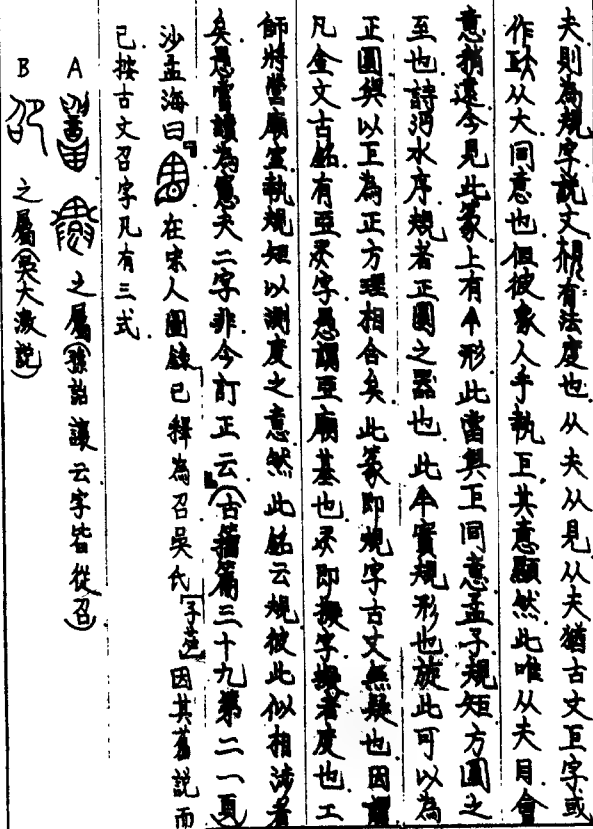 夫則為規字說文規有法度也从夫从見从夫猶古文巨字或
作㠪从大同意也但彼象人手執巨其意顯然此唯从夫目會
意稍遠今見此篆上有𠆢形此當與巨同意孟子規矩方圓之
至也詩沔水序規者正圓之器也此𠆢實規形也旋此可以為
正圓與以巨為正方理相合矣此篆即規字古文無疑也因謂
凡金文古銘有亞字愚謂亞廟基也即擬字擬者度也工
師將營廟室執規矩以測度之意然此銘云規彼此似相涉者
矣愚嘗讀為寬夫二字非今訂正云」（古籀篇三十九第二一頁）
沙孟海曰『在宋人圖錄已釋為召吳氏［子苾］因其舊說而
已按古文召字凡有三式
A 之屬（孫詒讓云字皆從召）
B 之屬（吳大澂說）